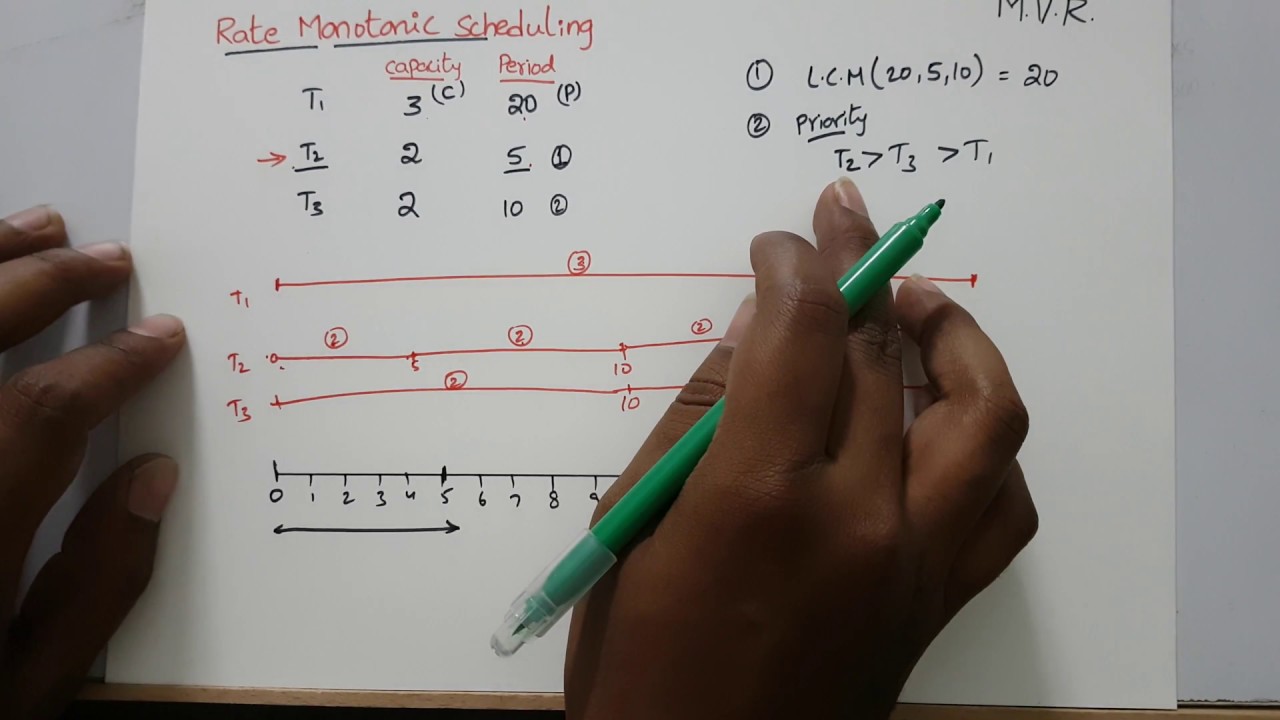 Rate Monotonic Scheduling
M.V.R.
capacity Period
T1 3 (C) 20 (P)
→ T2 2 5 ①
T3 2 10 ②
① L.C.M (20, 5, 10) = 20
② Priority
T2 > T3 > T1
③
T1
② ② ②
T2 0 5 10
②
T3 10
0 1 2 3 4 5 6 7 8 9